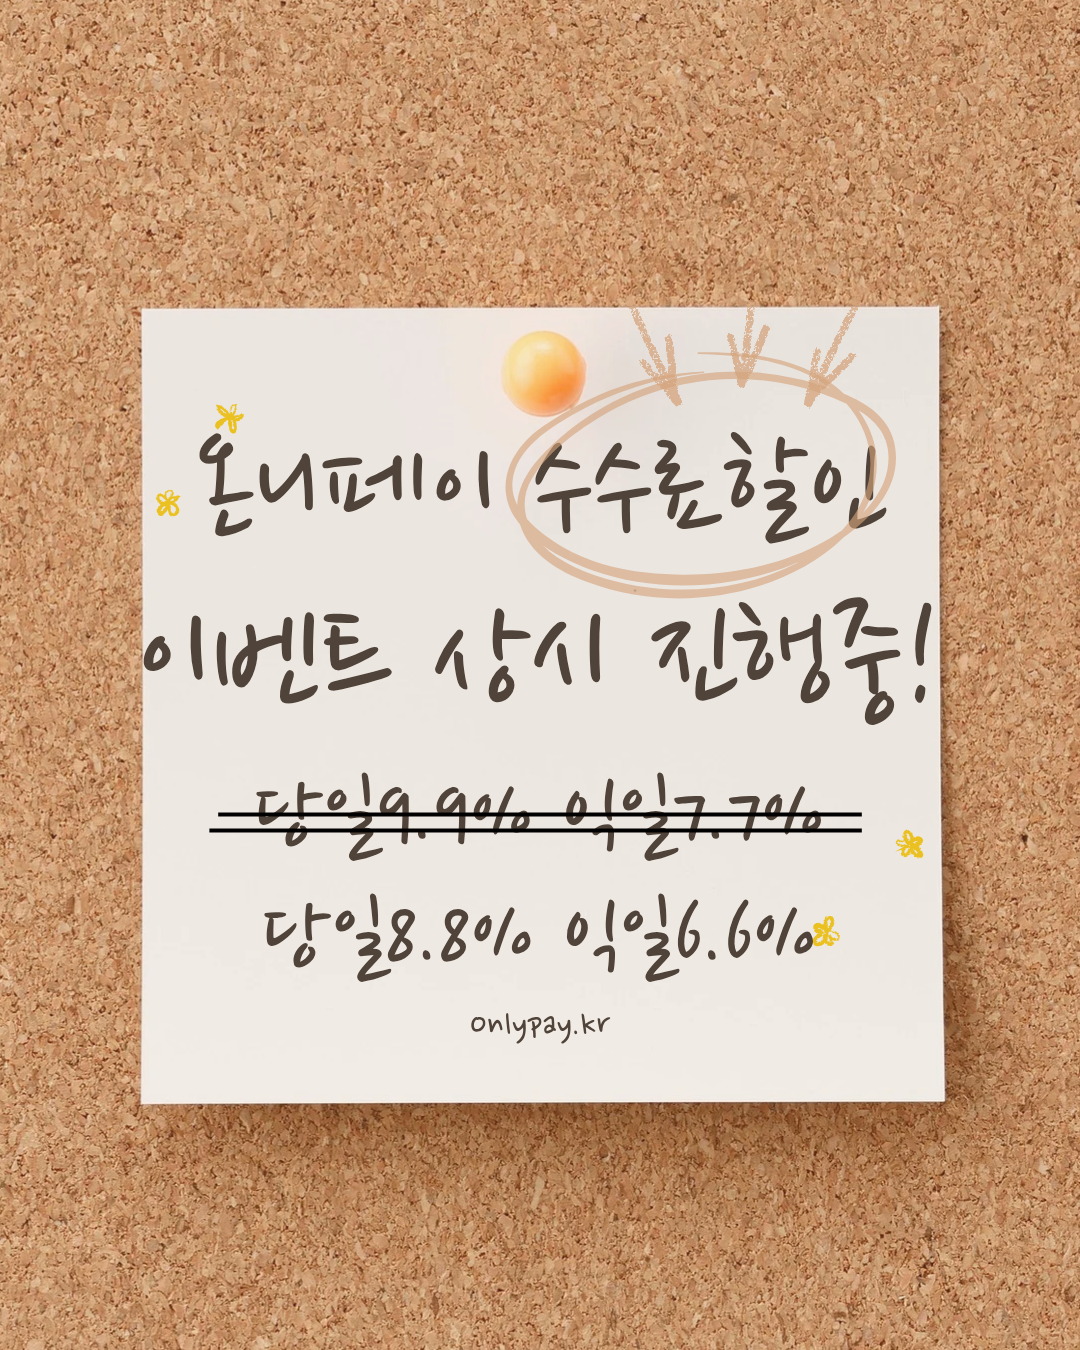 온니페이 수수료할인
이벤트 상시 진행중!
당일9.9% 익일7.7%
당일8.8% 익일6.6%
onlypay.kr